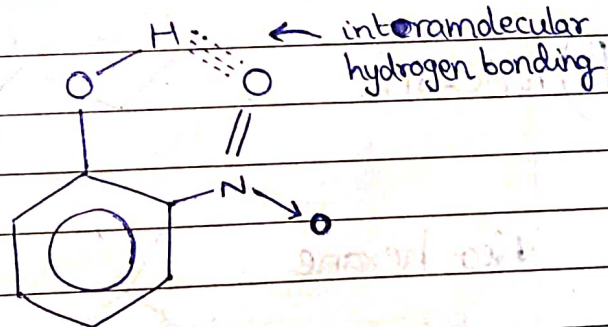 H ← interamolecular
hydrogen bonding
O O
N
O